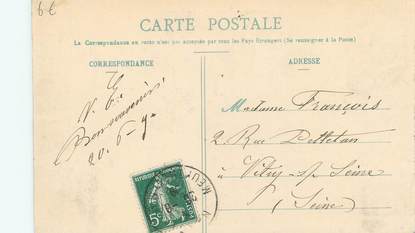 6€
CARTE POSTALE
La Correspondance au recto n'est pas acceptée par tous les Pays Étrangers (Se renseigner à la Poste)
CORRESPONDANCE
ADRESSE
V. E.
Bon souvenir
20-6-
Madame François
2 Rue Pelletan
à Vitry s/ Seine
(Seine)
5c